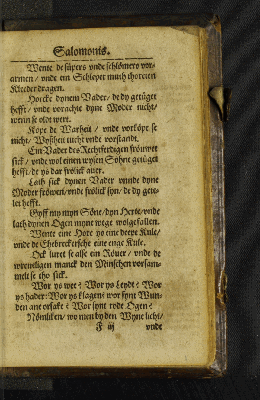 Salomonis.
Wente de süpers vnde schlömers vor-
armen / vnde ein Schleper muth thoreten
Kleder dragen.
Horcke dynem Vader / de dy getüget
hefft / vnde vorachte dyne Moder nicht /
wenn se olt wert.
Kope de Warheit / vnde vorköpe se
nicht / Wyßheit tucht vnde vorstandt.
Ein Vader des Rechtferdigen fröuwet
sick / vnde wol einen wysen Söhne getüget
hefft / de ys dar frölick auer.
Lath sick dynen Vader vnnde dyne
Moder fröwen / vnde frölick syn / de dy getü-
let hefft.
Gyff my myn Söne / dyn Herte / vnde
lath dynen Ogen myne wege wolgefallen.
Wente eine Hore ys eine deepe Kule /
vnde de Ehebrekersche eine enge Kule.
Ock luret se alse ein Röuer / vnde de
wreweligen manck den Minschen vorsam-
melt se tho sick.
Wor ys wee? Wor ys Leydt? Wor
ys hader? Wor ys klagen? wor synt Wun-
den ane orsake? Wor synt rode Ogen?
Nömliken / wo men by den Wyne licht /
F iij vnde